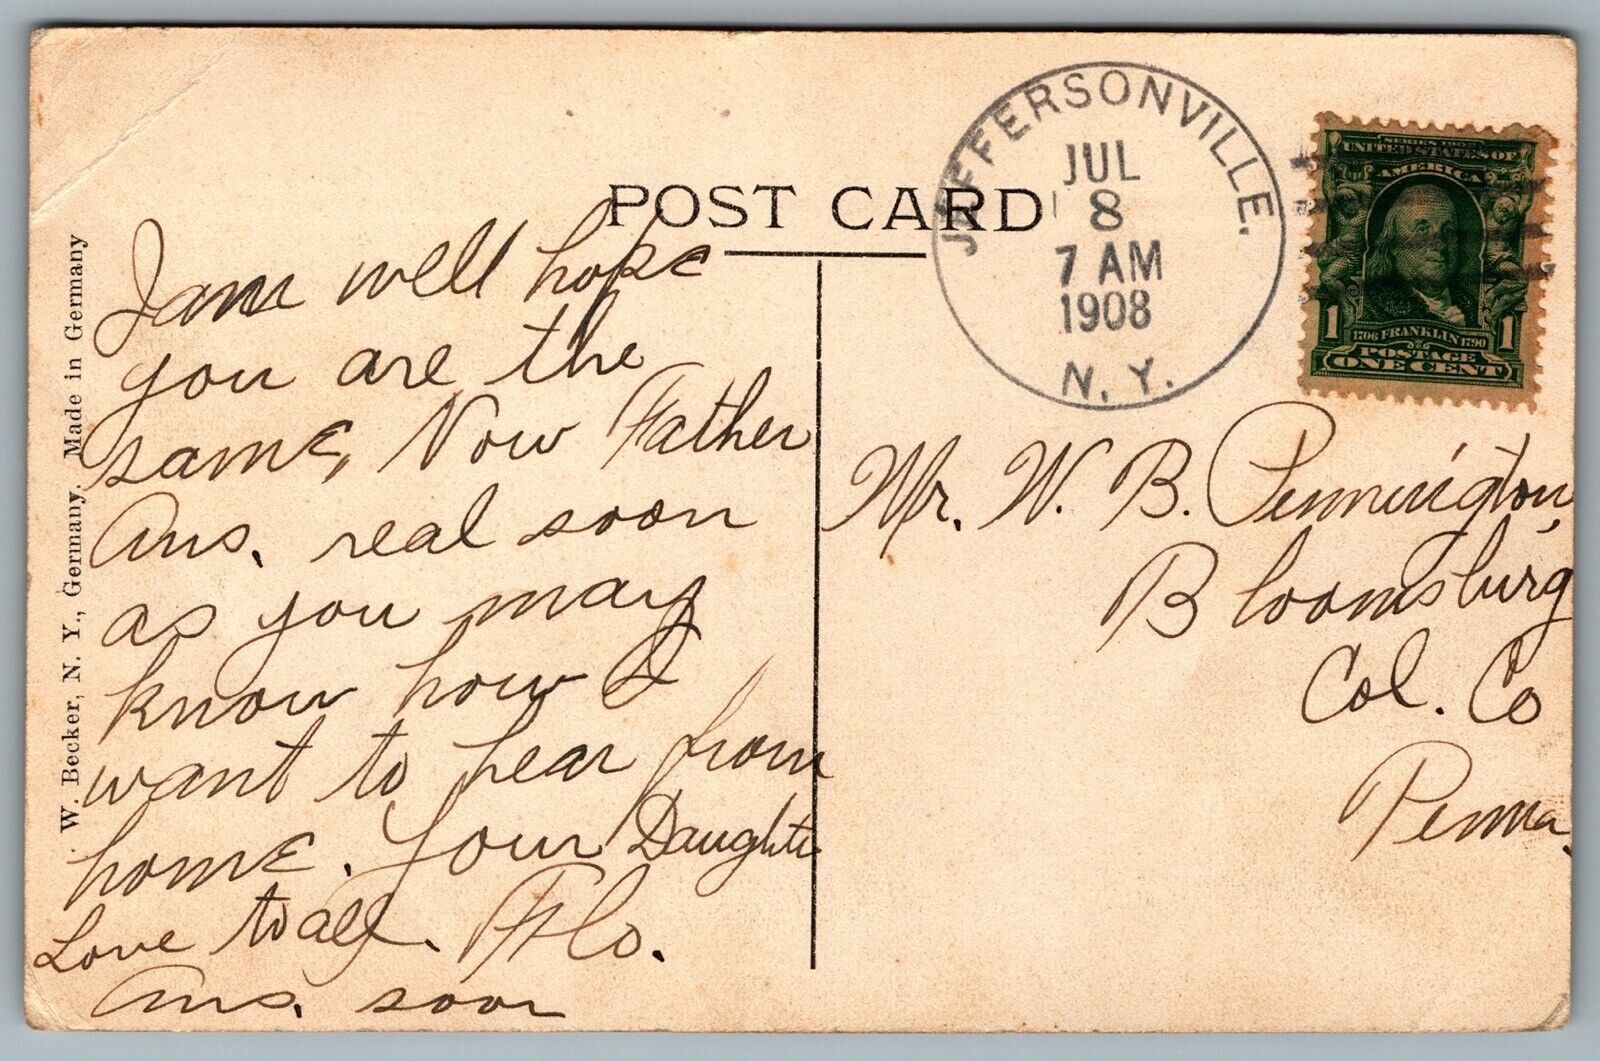 POST CARD
W. Becker, N. Y., Germany. Made in Germany
JEFFERSONVILLE.
JUL
8
7 AM
1908
N. Y.
SERIES 1902
UNITED STATES OF
AMERICA
1 1706 FRANKLIN 1790 1
POSTAGE
ONE CENT
I am well hope
you are the
same, Now Father
Ans. real soon
as you may
know how I
want to hear from
home. Your Daughter
Love to all. Flo.
Ans. soon
Mr. W. B. Pennington,
Bloomsburg
Col. Co
Penna.